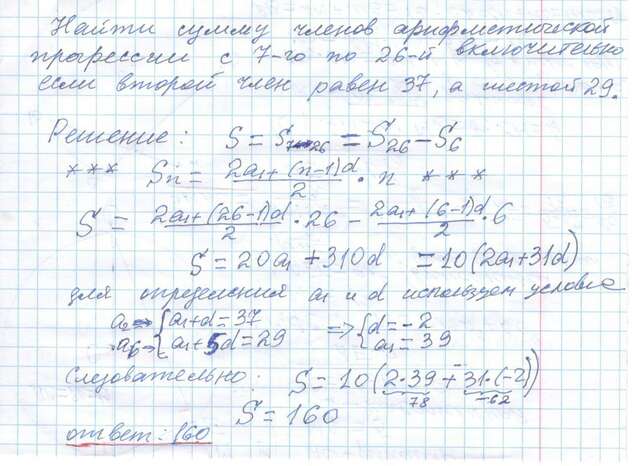 Найти сумму членов арифметической
прогрессии с 7-го по 26-й включительно
если второй член равен 37, а шестой 29.
Решение: S = S₇₋₂₆ = S₂₆ – S₆
*** Sn = (2a₁ + (n-1)d)/2 · n ***
S = (2a₁ + (26-1)d)/2 · 26 – (2a₁ + (6-1)d)/2 · 6
S = 20a₁ + 310d = 10(2a₁ + 31d)
для определения a₁ и d используем условие
a₂ → { a₁ + d = 37 => { d = -2
a₆ → { a₁ + 5d = 29 { a₁ = 39
Следовательно: S = 10(2·39 + 31·(-2))
78 -62
S = 160
ответ: 160